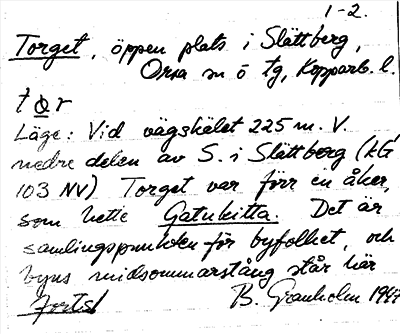 1-2.
Torget, öppen plats i Slättberg,
Orsa sn o tg, Kopparb. l.
Läge: Vid vägskälet 225 m. V.
nedre delen av S. i Slättberg (kG
103 NV) Torget var förr en åker,
som hette Gatukitta. Det är
samlingspunkten för byfolket, och
byns midsommarstång står här
Forts/ B. Granholm